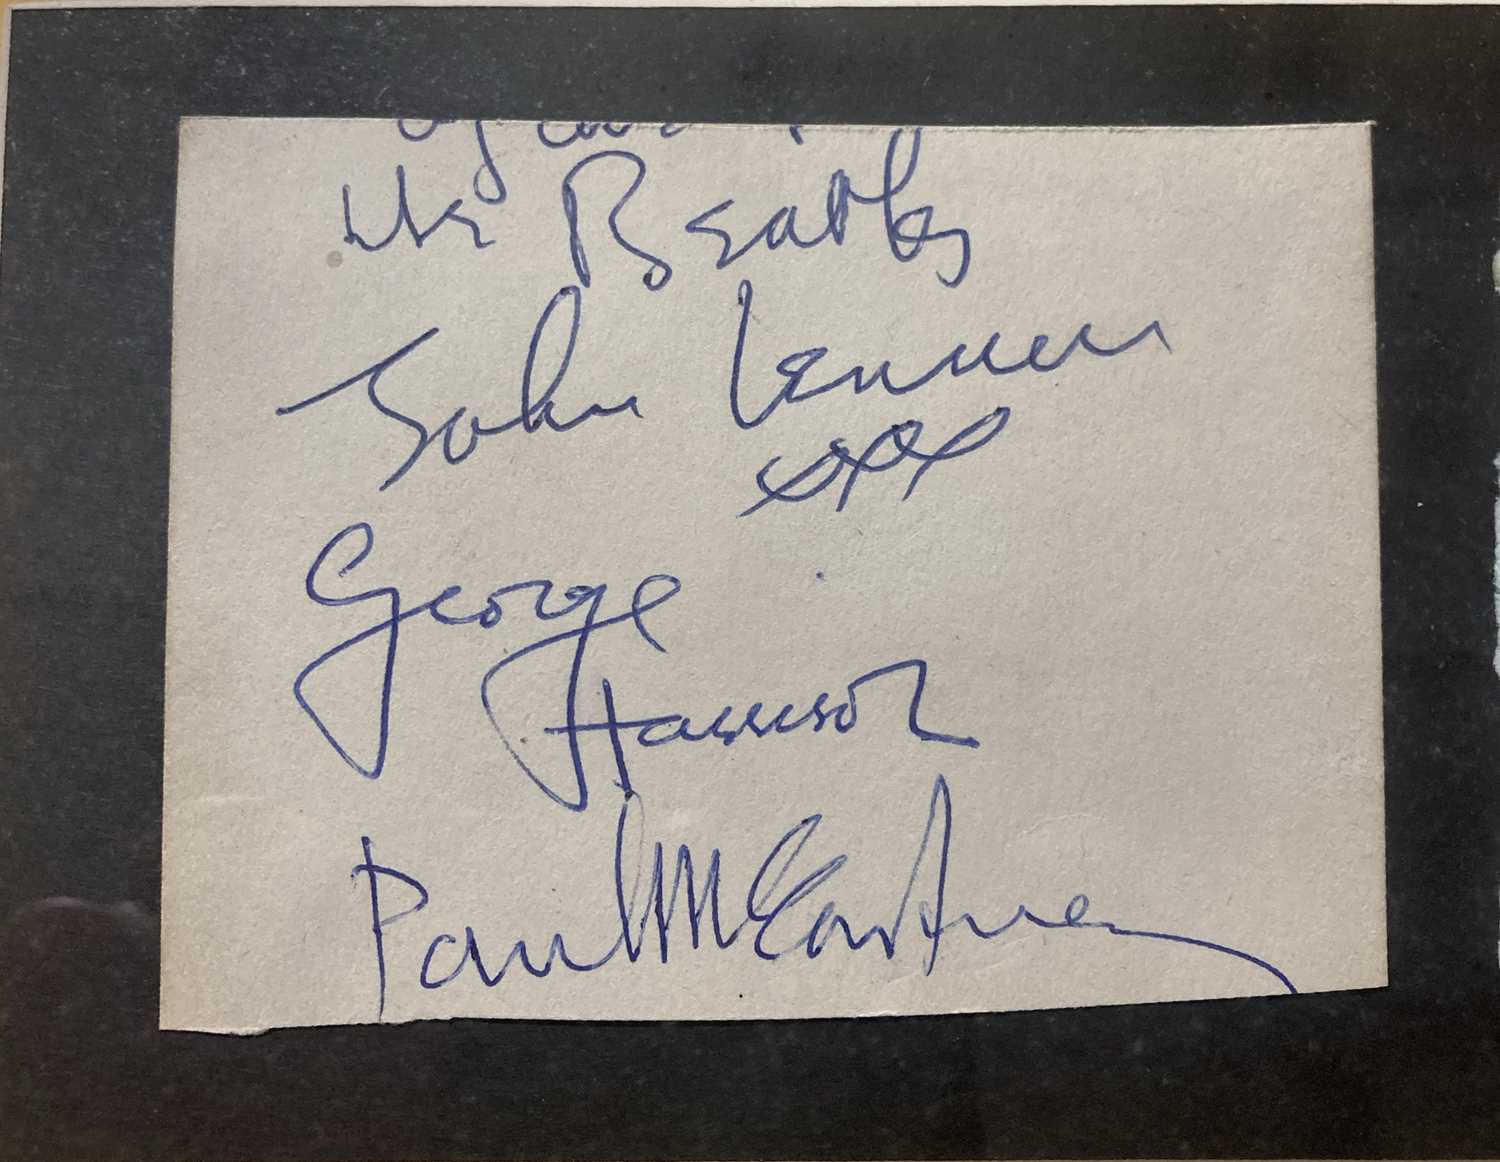 the Beatles
John Lennon
xxx
George
Harrison
Paul McCartney